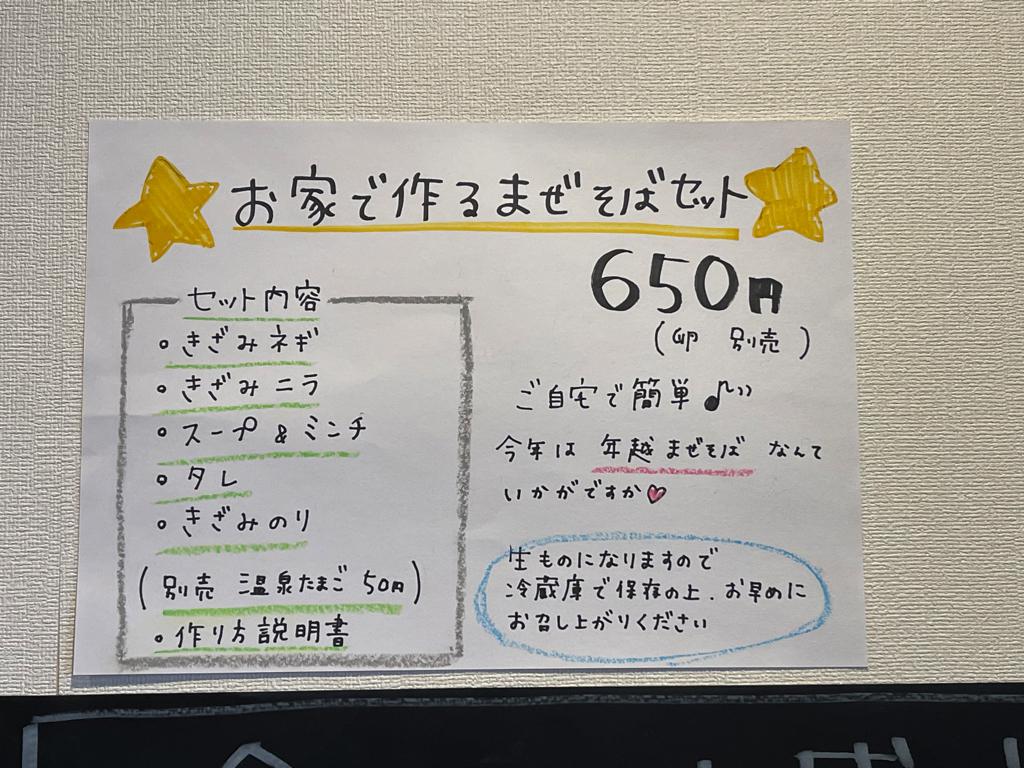 お家で作るまぜそばセット
650円
(卵 別売)
セット内容
・きざみネギ
・きざみニラ
・スープ&ミンチ
・タレ
・きざみのり
(別売 温泉たまご 50円)
・作り方説明書
ご自宅で簡単♪
今年は 年越まぜそば なんて
いかがですか♡
生ものになりますので
冷蔵庫で保存の上、お早めに
お召し上がりください